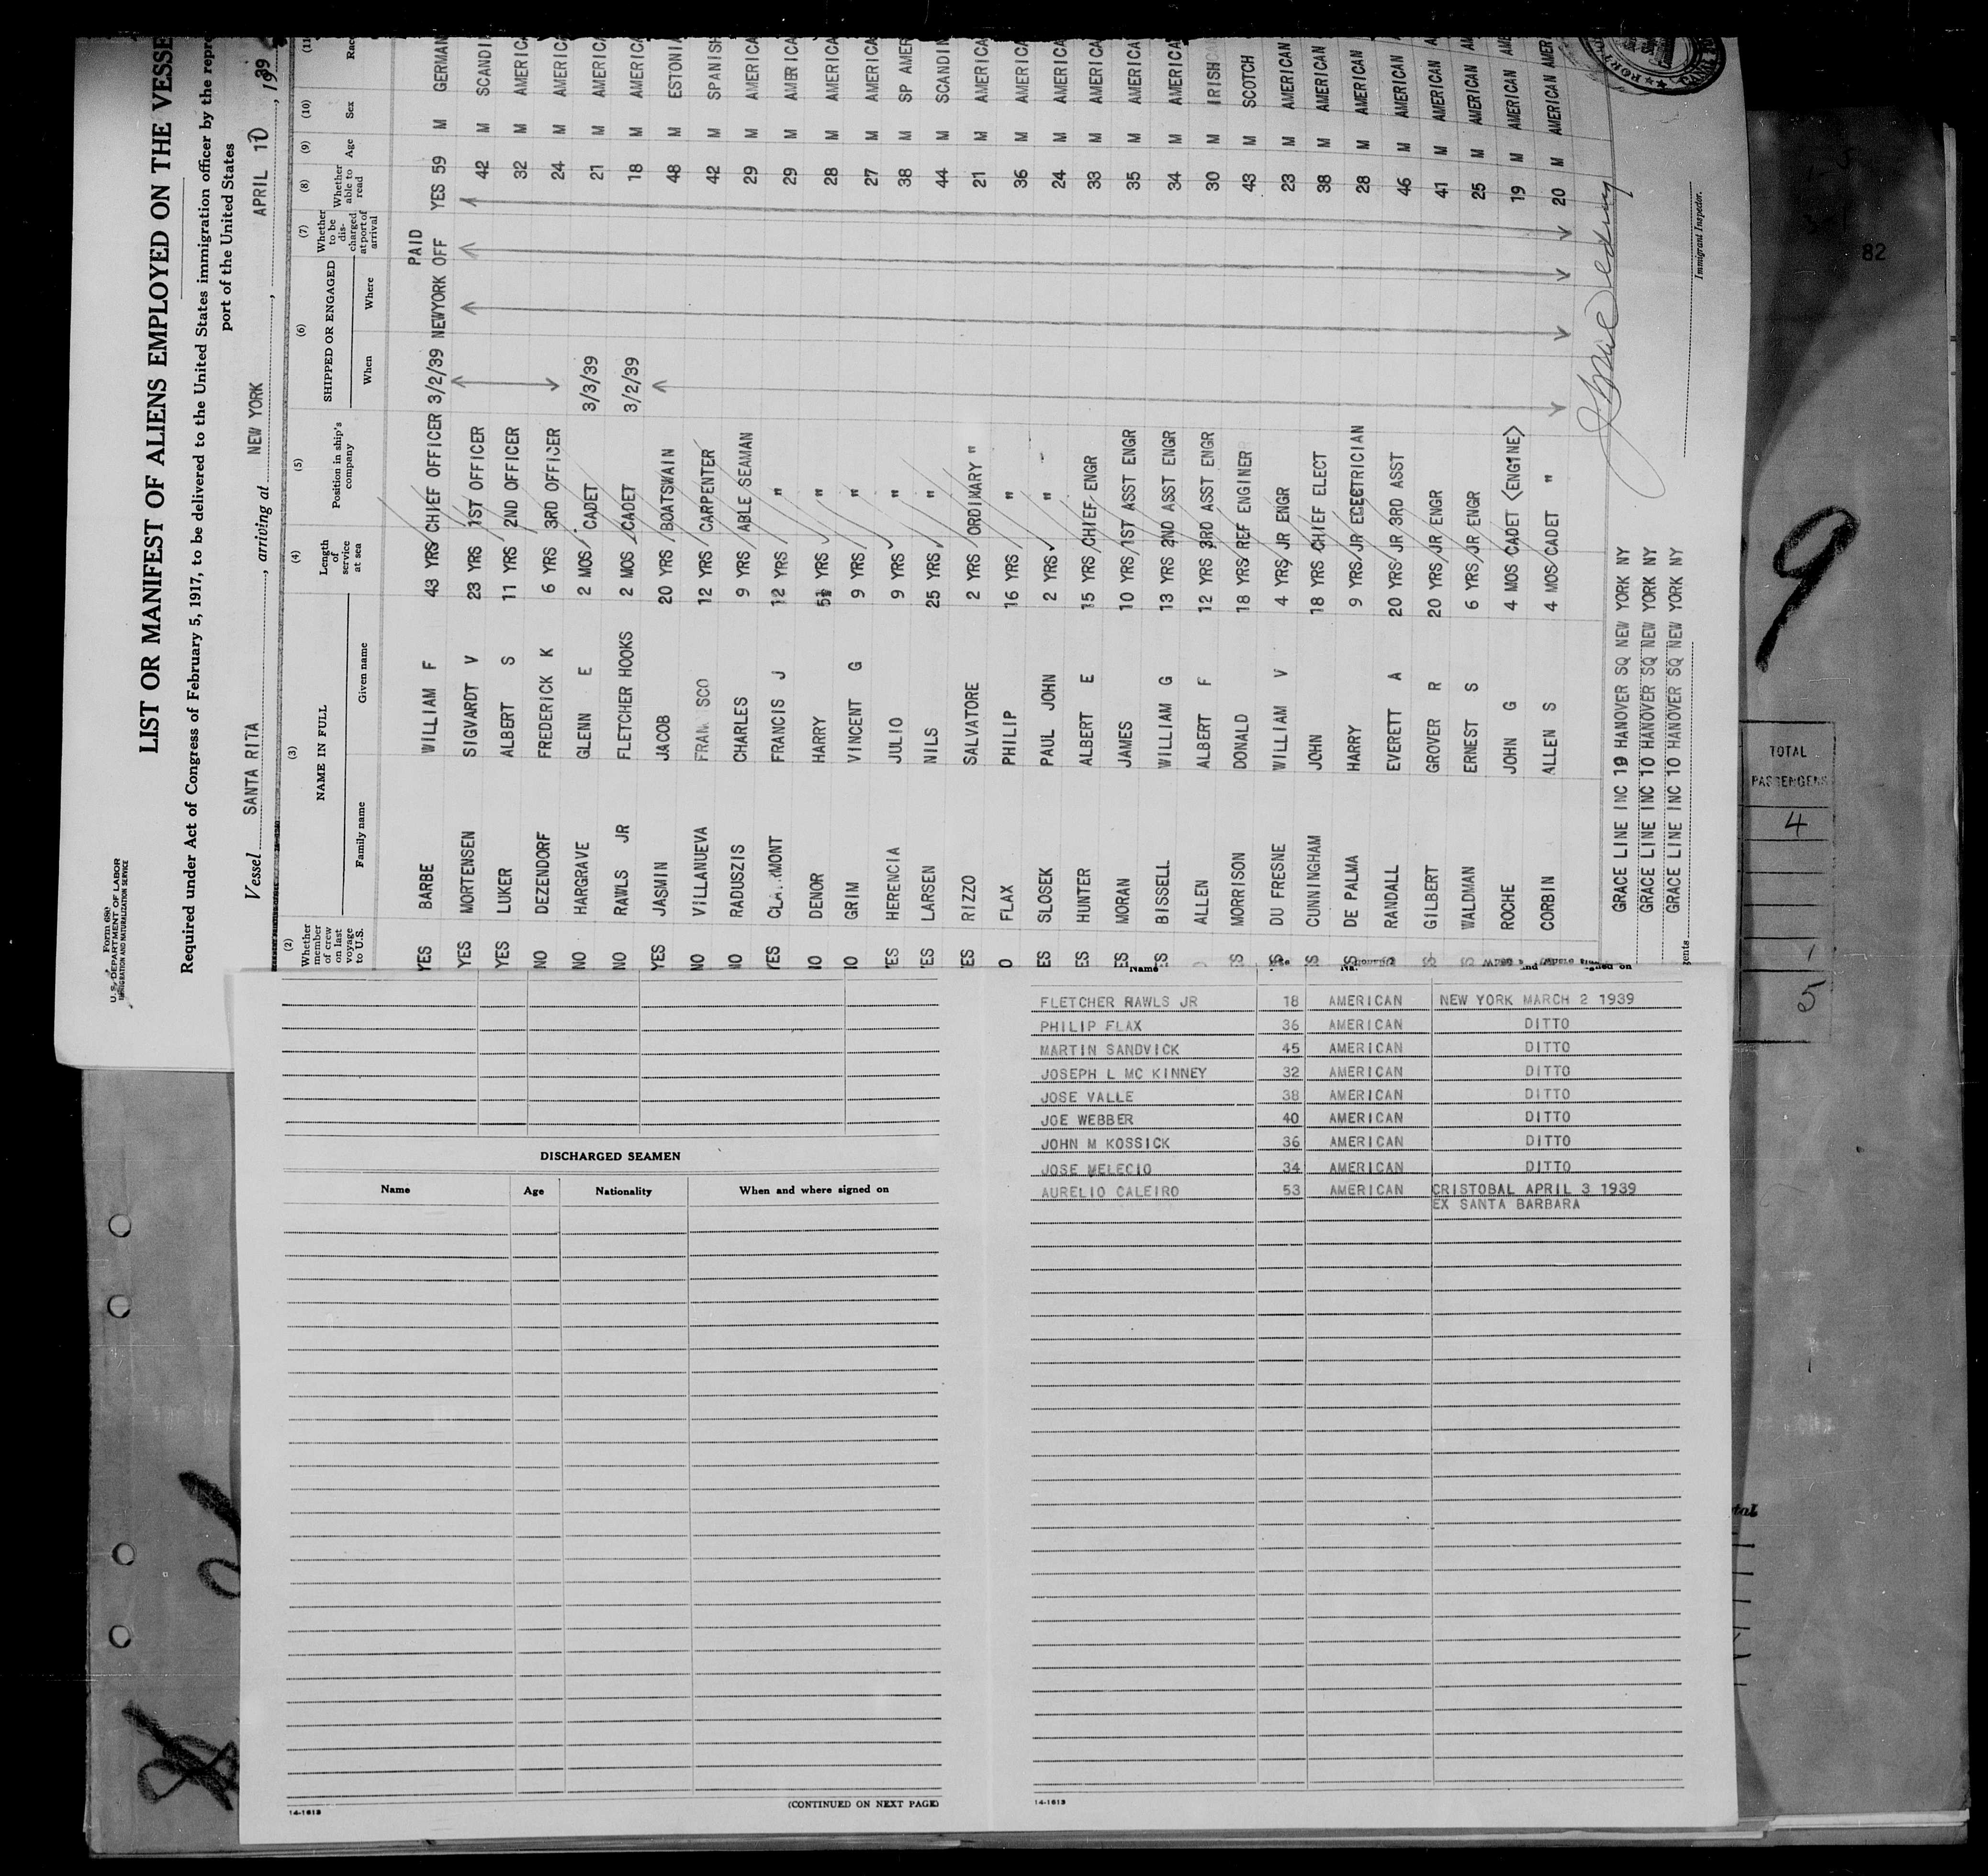 Form 680
U. S. DEPARTMENT OF LABOR
IMMIGRATION AND NATURALIZATION SERVICE
LIST OR MANIFEST OF ALIENS EMPLOYED ON THE VESSE
Required under Act of Congress of February 5, 1917, to be delivered to the United States immigration officer by the repre
port of the United States
Vessel SANTA RITA, arriving at NEW YORK, APRIL 10, 1939
(2) (3) (4) (5) (6) (7) (8) (9) (10) (11
Whether member of crew on last voyage to U.S. NAME IN FULL Family name Given name Length of service at sea Position in ship's company SHIPPED OR ENGAGED When Where Whether to be discharged at port of arrival Whether able to read Age Sex Rac
YES BARBE WILLIAM F 43 YRS CHIEF OFFICER 3/2/39 NEWYORK PAID OFF YES 59 M GERMAN
YES MORTENSEN SIGVARDT V 23 YRS 1ST OFFICER 42 M SCANDI
YES LUKER ALBERT S 11 YRS 2ND OFFICER 32 M AMERICA
NO DEZENDORF FREDERICK K 6 YRS 3RD OFFICER 24 M AMERICA
NO HARGRAVE GLENN E 2 MOS CADET 3/3/39 21 M AMERICA
NO RAWLS JR FLETCHER HOOKS 2 MOS CADET 3/2/39 18 M AMERICA
YES JASMIN JACOB 20 YRS BOATSWAIN 48 M ESTONIA
NO VILLANUEVA FRAN SCO 12 YRS CARPENTER 42 M SPANISH
NO RADUSZIS CHARLES 9 YRS ABLE SEAMAN 29 M AMERICA
YES CLA RMONT FRANCIS J 12 YRS " 29 M AMERICA
NO DENOR HARRY 5½ YRS " 28 M AMERICA
NO GRIM VINCENT G 9 YRS " 27 M AMERICA
YES HERENCIA JULIO 9 YRS " 38 M SP AMER
YES LARSEN NILS 25 YRS " 44 M SCANDIN
YES RIZZO SALVATORE 2 YRS ORDINARY " 21 M AMERICA
O FLAX PHILIP 16 YRS " 36 M AMERICA
ES SLOSEK PAUL JOHN 2 YRS " 24 M AMERICA
ES HUNTER ALBERT E 15 YRS CHIEF ENGR 33 M AMERICA
ES MORAN JAMES 10 YRS 1ST ASST ENGR 35 M AMERICA
S BISSELL WILLIAM G 13 YRS 2ND ASST ENGR 34 M AMERICA
ALLEN ALBERT F 12 YRS 3RD ASST ENGR 30 M IRISH
S MORRISON DONALD 18 YRS REF ENGINER 43 M SCOTCH
S DU FRESNE WILLIAM V 4 YRS JR ENGR 23 M AMERICAN
S CUNNINGHAM JOHN 18 YRS CHIEF ELECT 38 M AMERICAN
S DE PALMA HARRY 9 YRS JR ECECTRICIAN 28 M AMERICAN
RANDALL EVERETT A 20 YRS JR 3RD ASST 46 M AMERICAN A
S GILBERT GROVER R 20 YRS JR ENGR 41 M AMERICAN A
S WALDMAN ERNEST S 6 YRS JR ENGR 25 M AMERICAN AM
ROCHE JOHN G 4 MOS CADET (ENGINE) 19 M AMERICAN AME
CORBIN ALLEN S 4 MOS CADET " 20 M AMERICAN AMER
GRACE LINE INC 19 HANOVER SQ NEW YORK NY
GRACE LINE INC 10 HANOVER SQ NEW YORK NY
GRACE LINE INC 10 HANOVER SQ NEW YORK NY
gents
Immigrant Inspector.
82
9
TOTAL
PASSENGERS
4
1
5
tal
DISCHARGED SEAMEN
Name Age Nationality When and where signed on
14-1613
(CONTINUED ON NEXT PAGE)
Name
FLETCHER RAWLS JR 18 AMERICAN NEW YORK MARCH 2 1939
PHILIP FLAX 36 AMERICAN DITTO
MARTIN SANDVICK 45 AMERICAN DITTO
JOSEPH L MC KINNEY 32 AMERICAN DITTO
JOSE VALLE 38 AMERICAN DITTO
JOE WEBBER 40 AMERICAN DITTO
JOHN M KOSSICK 36 AMERICAN DITTO
JOSE MELECIO 34 AMERICAN DITTO
AURELIO CALEIRO 53 AMERICAN CRISTOBAL APRIL 3 1939
EX SANTA BARBARA
14-1613